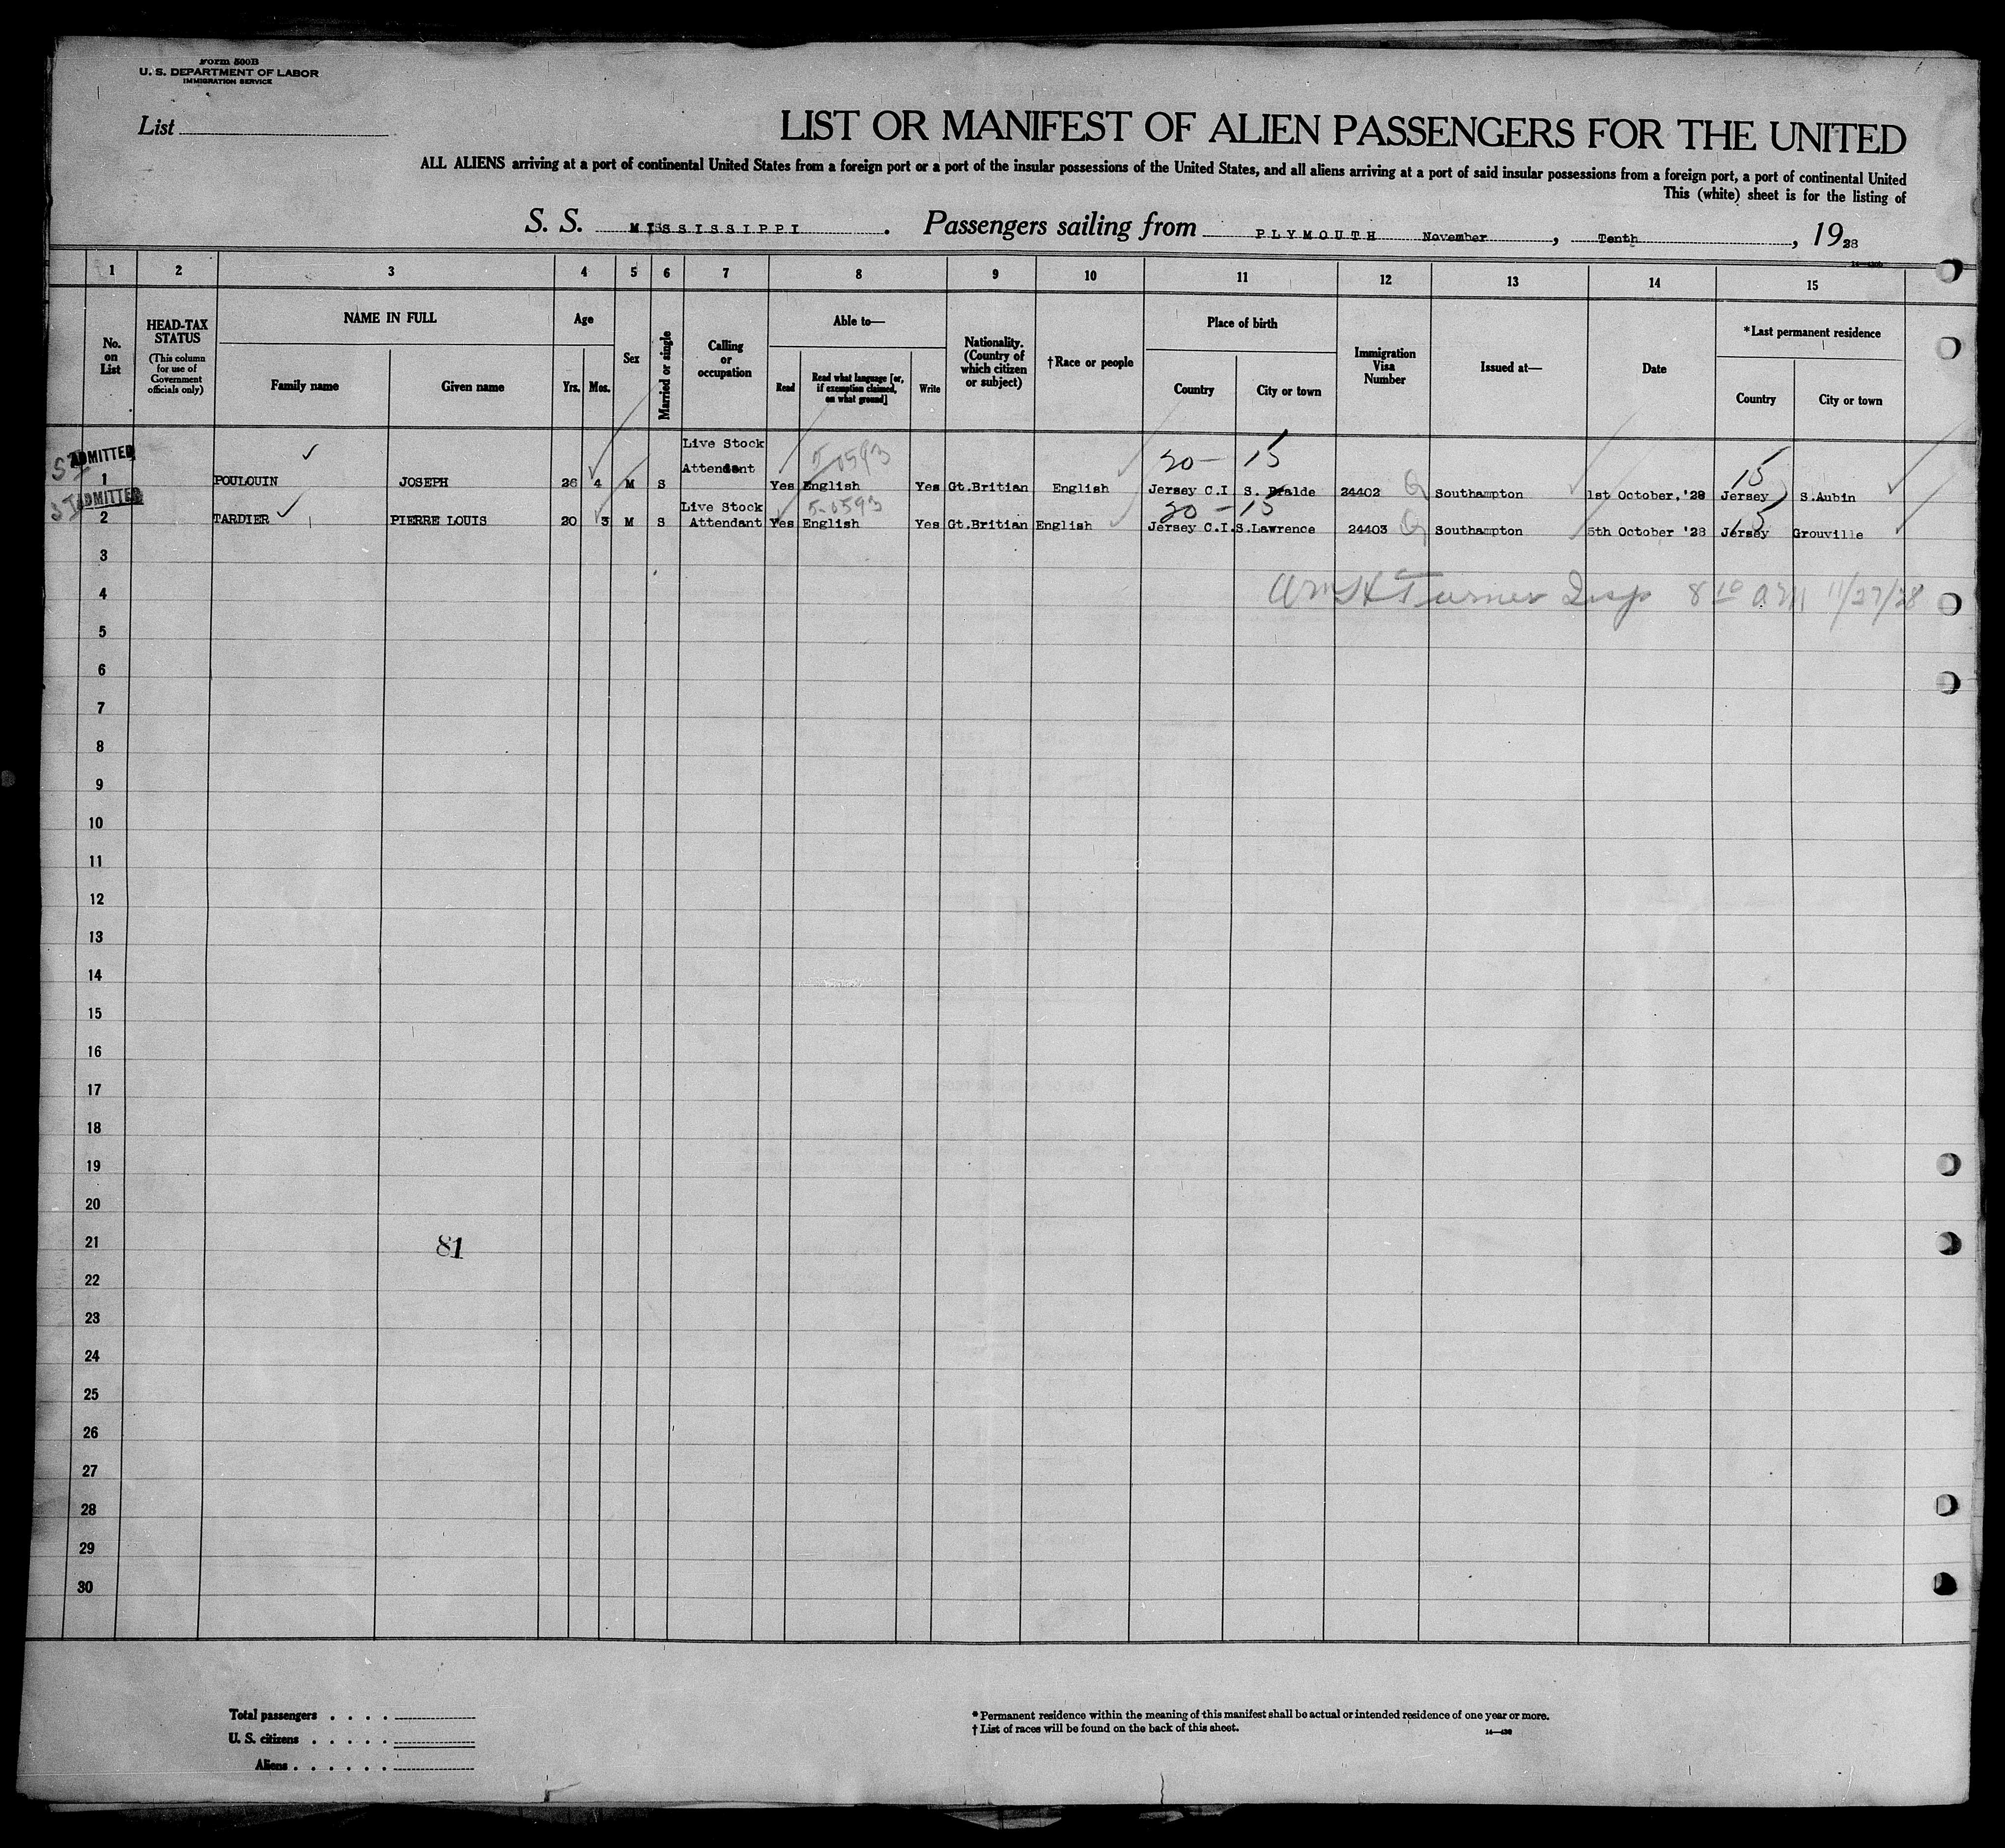 Form 500B
U. S. DEPARTMENT OF LABOR
IMMIGRATION SERVICE
List
LIST OR MANIFEST OF ALIEN PASSENGERS FOR THE UNITED
ALL ALIENS arriving at a port of continental United States from a foreign port or a port of the insular possessions of the United States, and all aliens arriving at a port of said insular possessions from a foreign port, a port of continental United
This (white) sheet is for the listing of
S. S. MISSISSIPPI . Passengers sailing from PLYMOUTH November , Tenth , 1928
1 2 3 4 5 6 7 8 9 10 11 12 13 14 15
No. on List
HEAD-TAX STATUS
(This column for use of Government officials only)
NAME IN FULL
Family name Given name
Age
Yrs. Mos.
Sex
Married or single
Calling or occupation
Able to—
Read
Read what language [or, if exemption claimed, on what ground]
Write
Nationality. (Country of which citizen or subject)
†Race or people
Place of birth
Country City or town
Immigration Visa Number
Issued at—
Date
*Last permanent residence
Country City or town
ADMITTED
1 POULOUIN JOSEPH 26 4 M S Live Stock Attendant Yes English Yes Gt.Britian English Jersey C.I 24402 Southampton 1st October,'28 Jersey S.Aubin
5-0593
20- 15
15
ADMITTED
2 TARDIER PIERRE LOUIS 20 3 M S Live Stock Attendant Yes English Yes Gt.Britian English Jersey C.I. S.Lawrence 24403 Southampton 5th October '28 Jersey Grouville
5-0593
20-15
15
3
4
Wm H Turner Insp 8 10 AM 11/27/28
5
6
7
8
9
10
11
12
13
14
15
16
17
18
19
20
21
81
22
23
24
25
26
27
28
29
30
Total passengers . . . .
U. S. citizens . . . . .
Aliens . . . . . .
* Permanent residence within the meaning of this manifest shall be actual or intended residence of one year or more.
† List of races will be found on the back of this sheet.